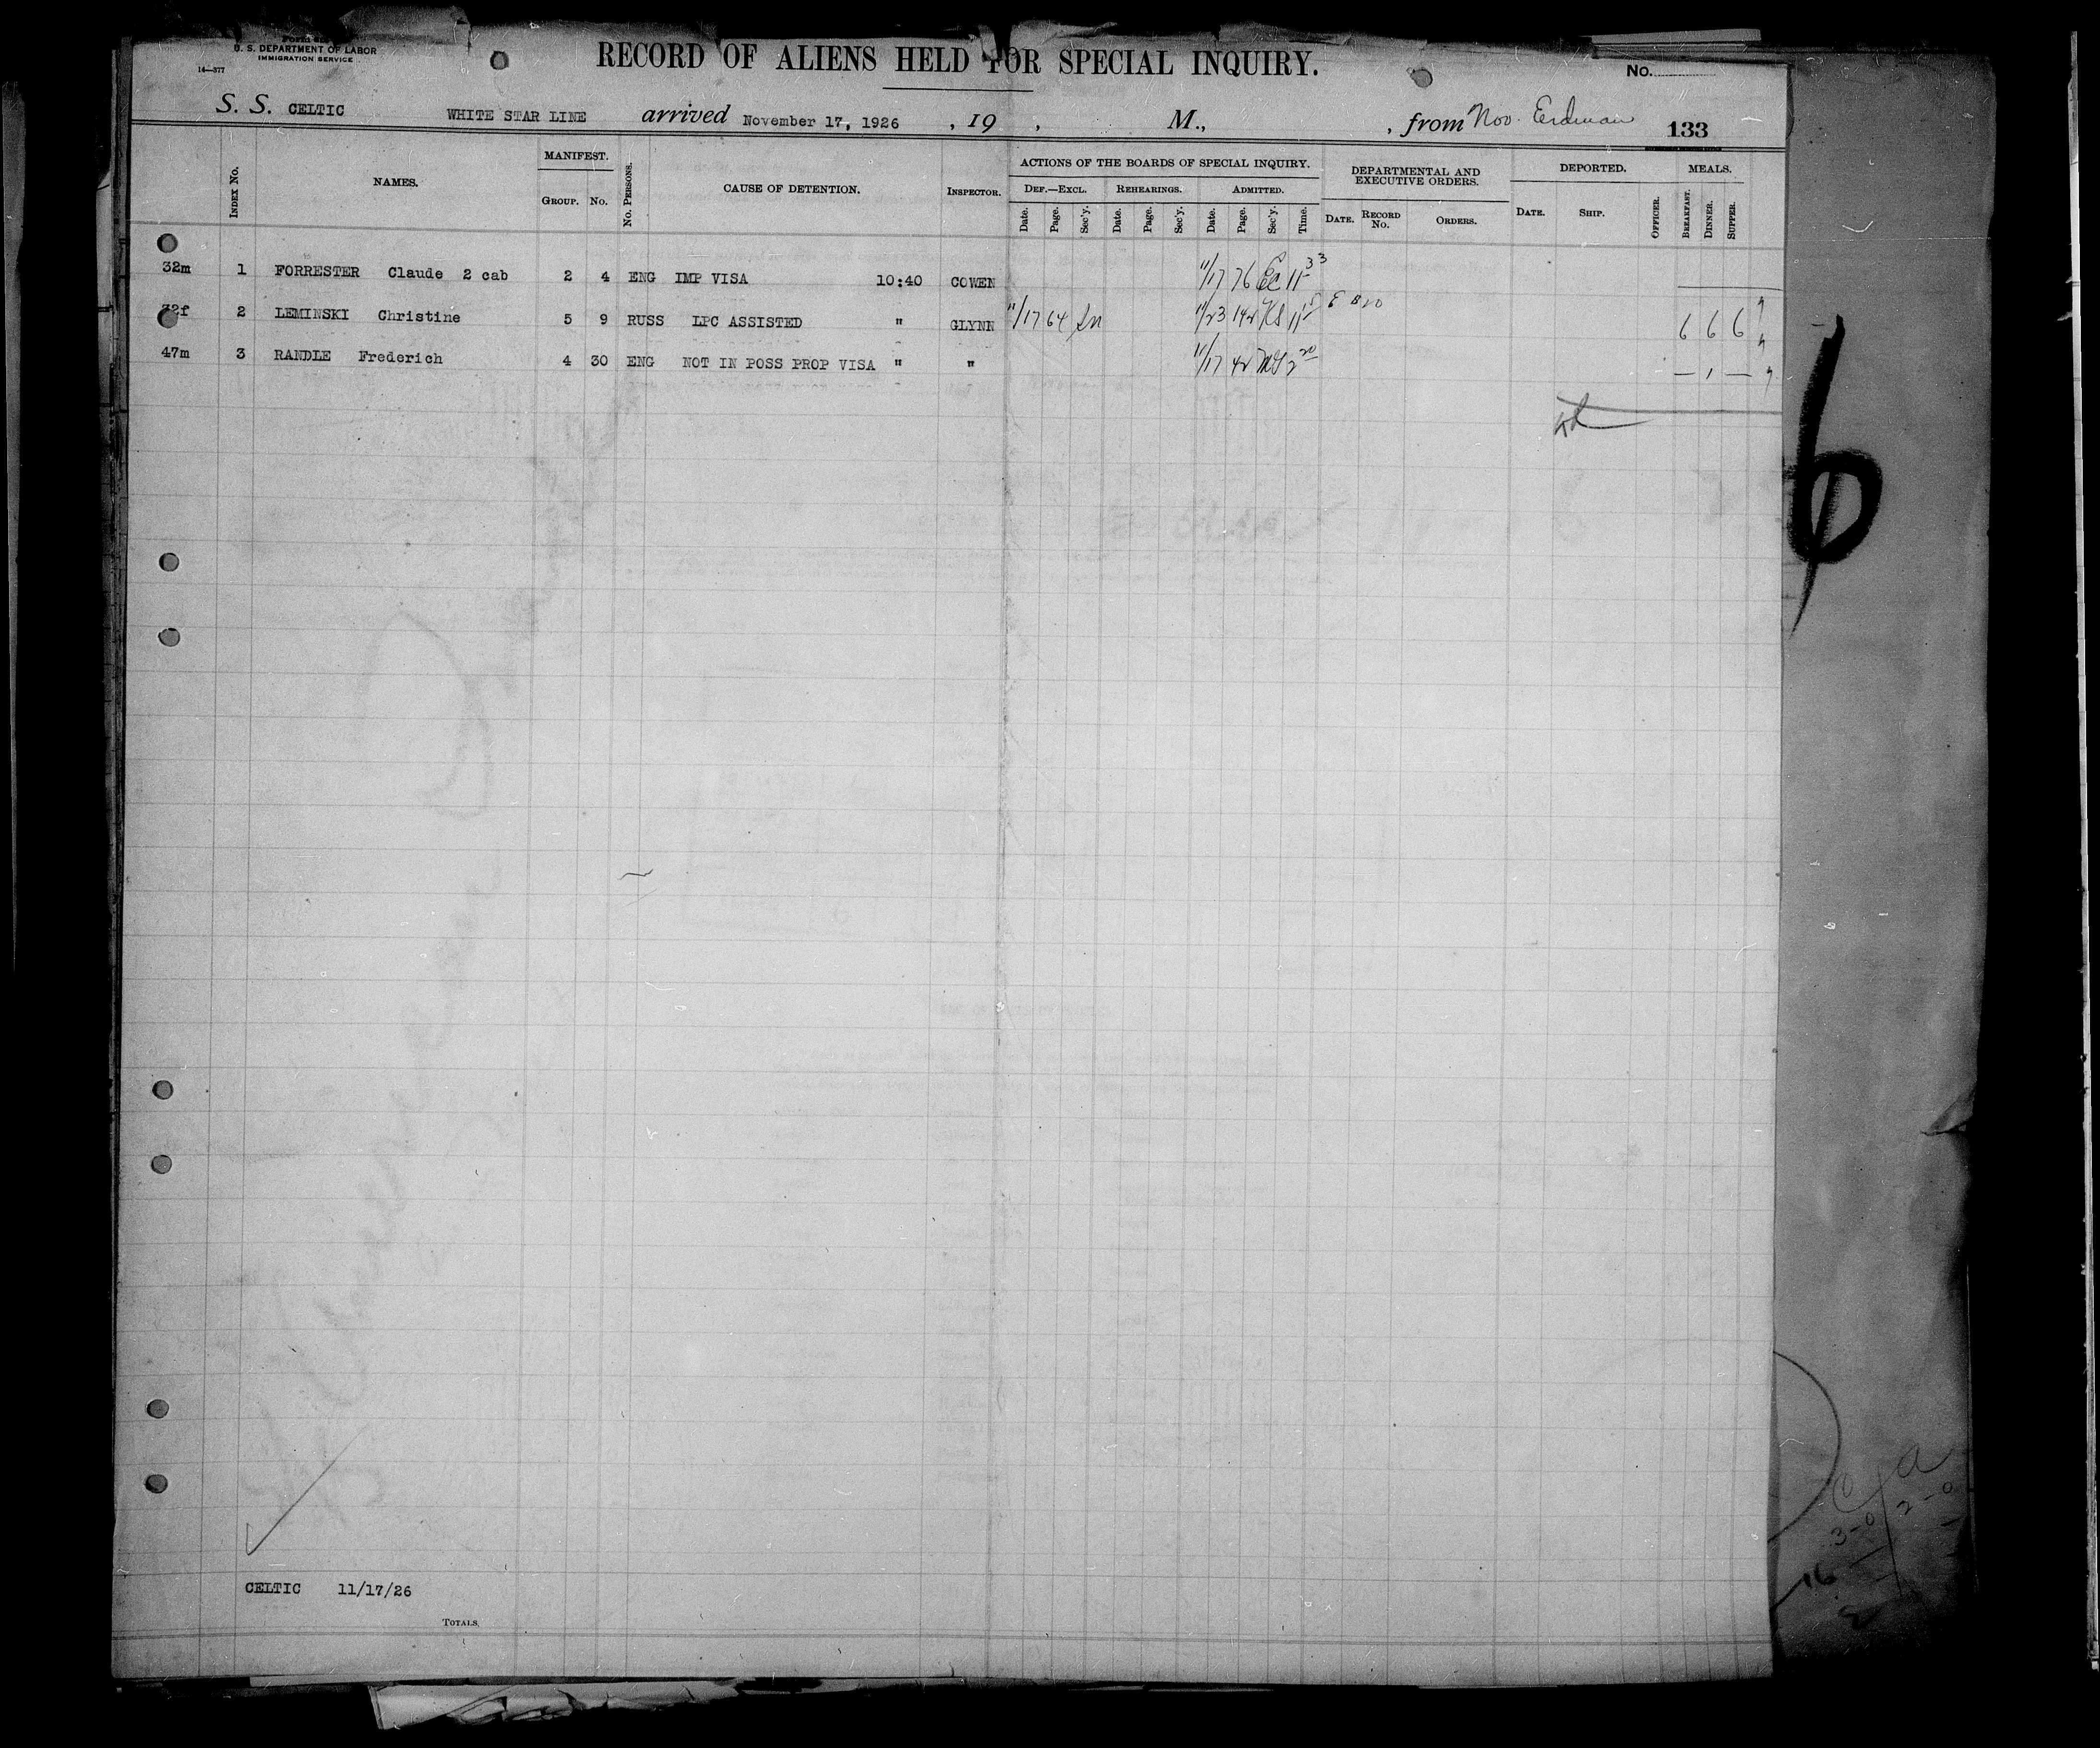 U. S. DEPARTMENT OF LABOR
IMMIGRATION SERVICE
14—377
RECORD OF ALIENS HELD FOR SPECIAL INQUIRY.
No.
S. S. CELTIC WHITE STAR LINE arrived November 17, 1926 , 19 , M., , from Nov. Erdman 133
INDEX No. NAMES. MANIFEST. GROUP. No. No. PERSONS. CAUSE OF DETENTION. INSPECTOR. ACTIONS OF THE BOARDS OF SPECIAL INQUIRY. DEPARTMENTAL AND EXECUTIVE ORDERS. DEPORTED. MEALS.
DEF.—EXCL. REHEARINGS. ADMITTED.
Date. Page. Sec'y. Date. Page. Sec'y. Date. Page. Sec'y. Time. DATE. RECORD No. ORDERS. DATE. SHIP. OFFICER. BREAKFAST. DINNER. SUPPER.
32m 1 FORRESTER Claude 2 cab 2 4 ENG IMP VISA 10:40 COWEN 11/17 76 EC 11 33
32f 2 LEMINSKI Christine 5 9 RUSS LPC ASSISTED " GLYNN 11/17 64 11/23 142 KS 11 6 6 6
47m 3 RANDLE Frederich 4 30 ENG NOT IN POSS PROP VISA " " 11/17 42 2 20 — 1 —
6
CELTIC 11/17/26
TOTALS
C a
3-0 2-0
16